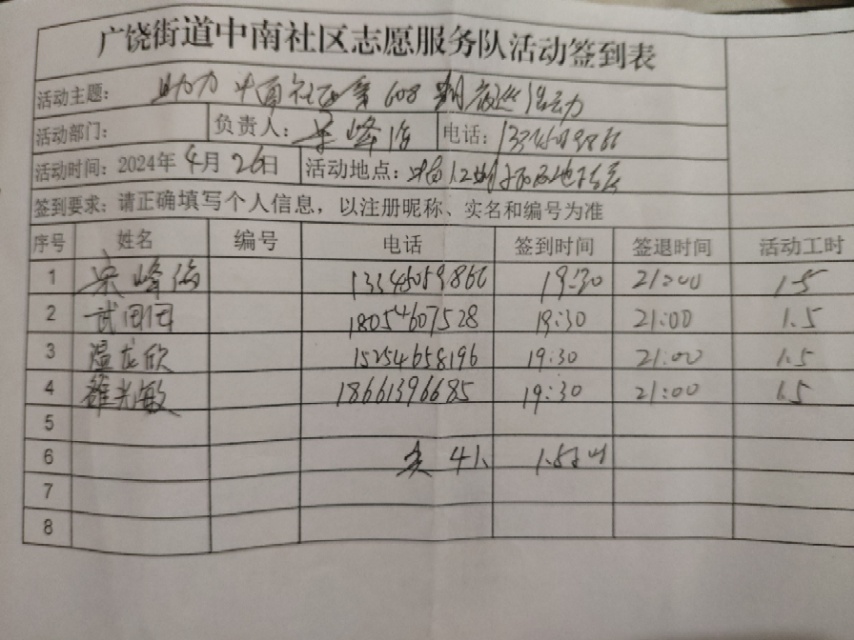 广饶街道中南社区志愿服务队活动签到表
活动主题： 助力中南社区第608期夜巡活动
活动部门： 负责人： 宋峰 电话：
活动时间：2024年4月26日 活动地点：
签到要求：请正确填写个人信息，以注册昵称、实名和编号为准
序号 姓名 编号 电话 签到时间 签退时间 活动工时
1 宋峰 13346059866 19:30 21:00 1.5
2 武团团 18054607528 19:30 21:00 1.5
3 温龙欣 15254658196 19:30 21:00 1.5
4 光敏 18661396685 19:30 21:00 1.5
5
6 共4人
7
8